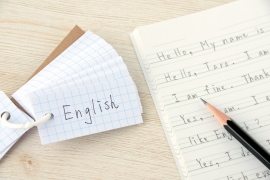 English
Hello, My name is
Hello, Tara. I am
I am fine. Thank
Yes, I am. I
like English?
Yes, I do.